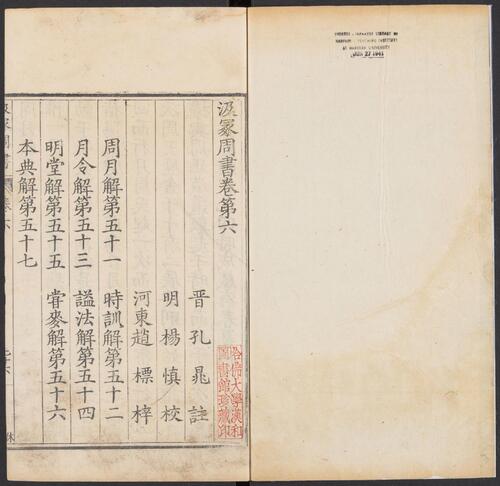 汲冢周書卷第六
晉孔晁註
明楊慎校
河東趙標梓
周月解第五十一 時訓解第五十二
月令解第五十三 謚法解第五十四
明堂解第五十五 甞麥解第五十六
本典解第五十七
哈佛大學漢和圖書館珍藏印
CHINESE - JAPANESE LIBRARY OF
HARVARD - YENCHING INSTITUTE
AT HARVARD UNIVERSITY
JUN 27 1941